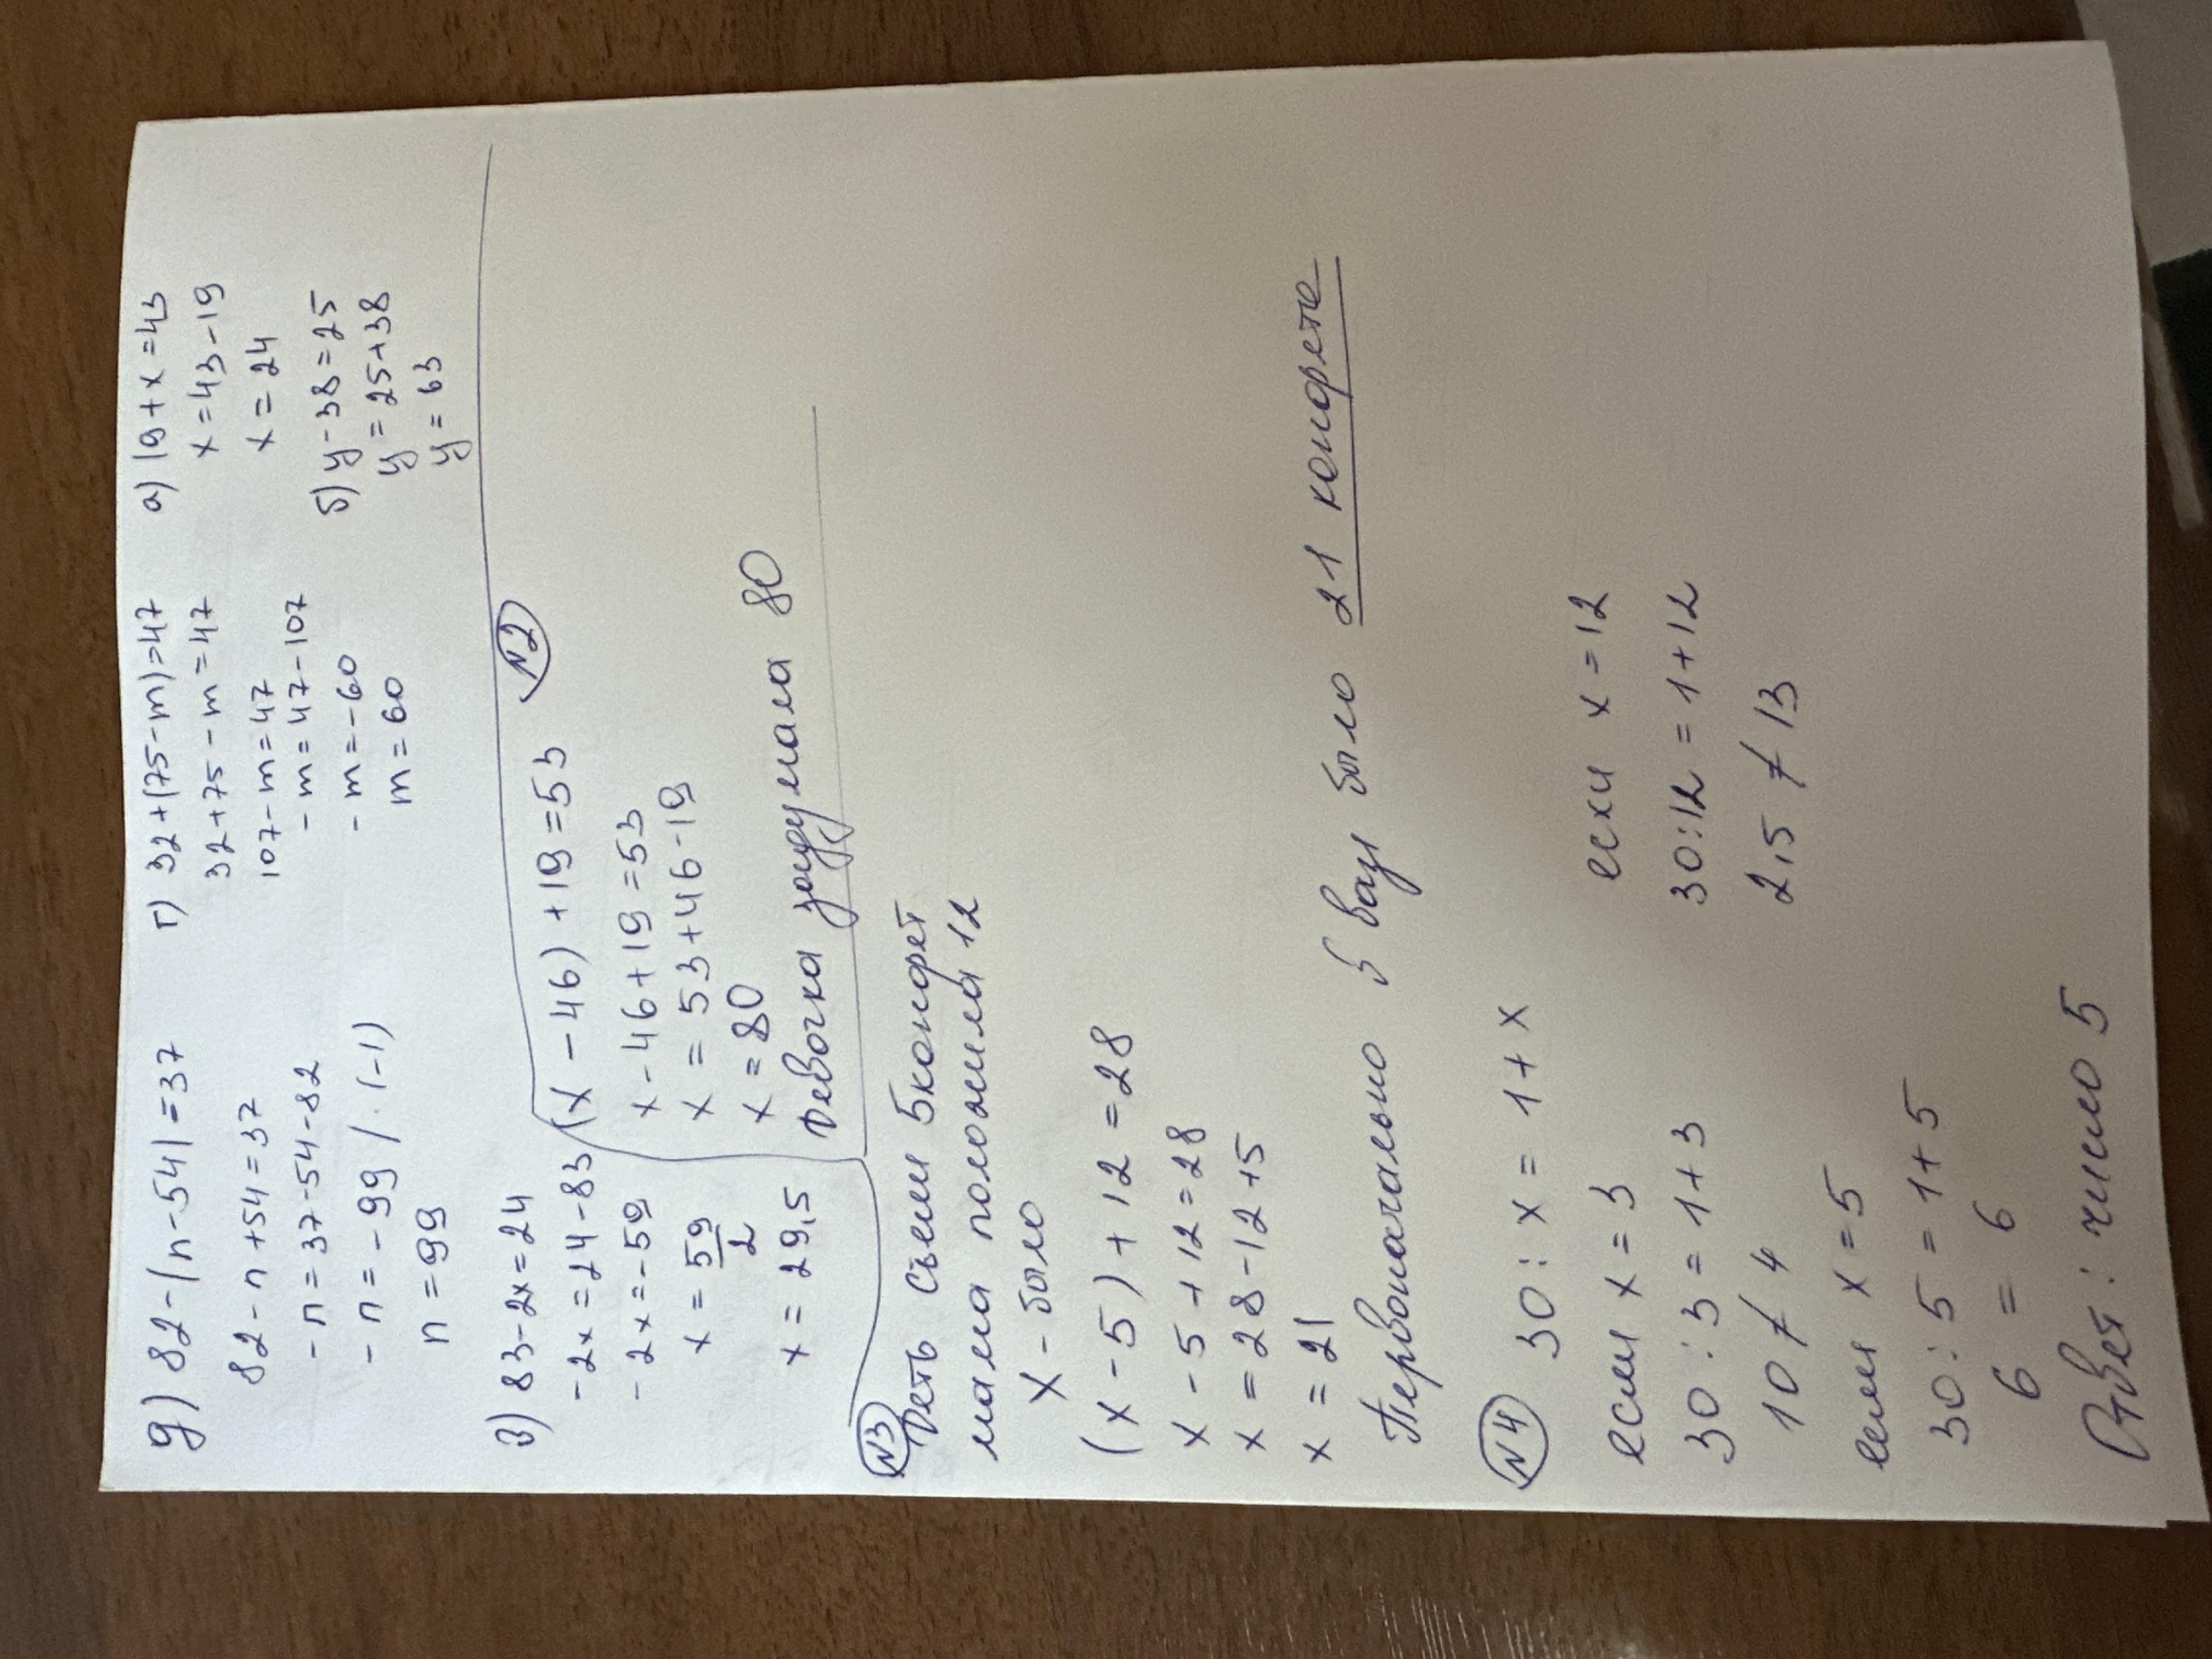 д) 82-(n-54)=37
82-n+54=37
-n=37-54-82
-n=-99 /·(-1)
n=99
г) 32+(75-m)=47
32+75-m=47
107-m=47
-m=47-107
-m=-60
m=60
а) 19+x=43
x=43-19
x=24
б) y-38=25
y=25+38
y=63
з) 83-2x=24
-2x=24-83
-2x=-59
x=59/2
x=29,5
N2
(x-46)+19=53
x-46+19=53
x=53+46-19
x=80
Девочка задумала 80
N3
Деть съели 5 конфет
мама положила 12
x - было
(x-5)+12=28
x-5+12=28
x=28-12+5
x=21
Первоначально в вазе было 21 конфета
N4
30:x=1+x
если x=3
30:3=1+3
10≠4
если x=12
30:12=1+12
2,5≠13
если x=5
30:5=1+5
6=6
Ответ: число 5